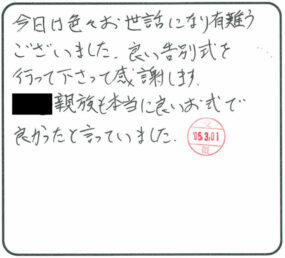 今日は色々お世話になり有難う
ございました。良い告別式を
行って下さって感謝します。
親族も本当に良いお式で
良かったと言っていました。
'05.3.01